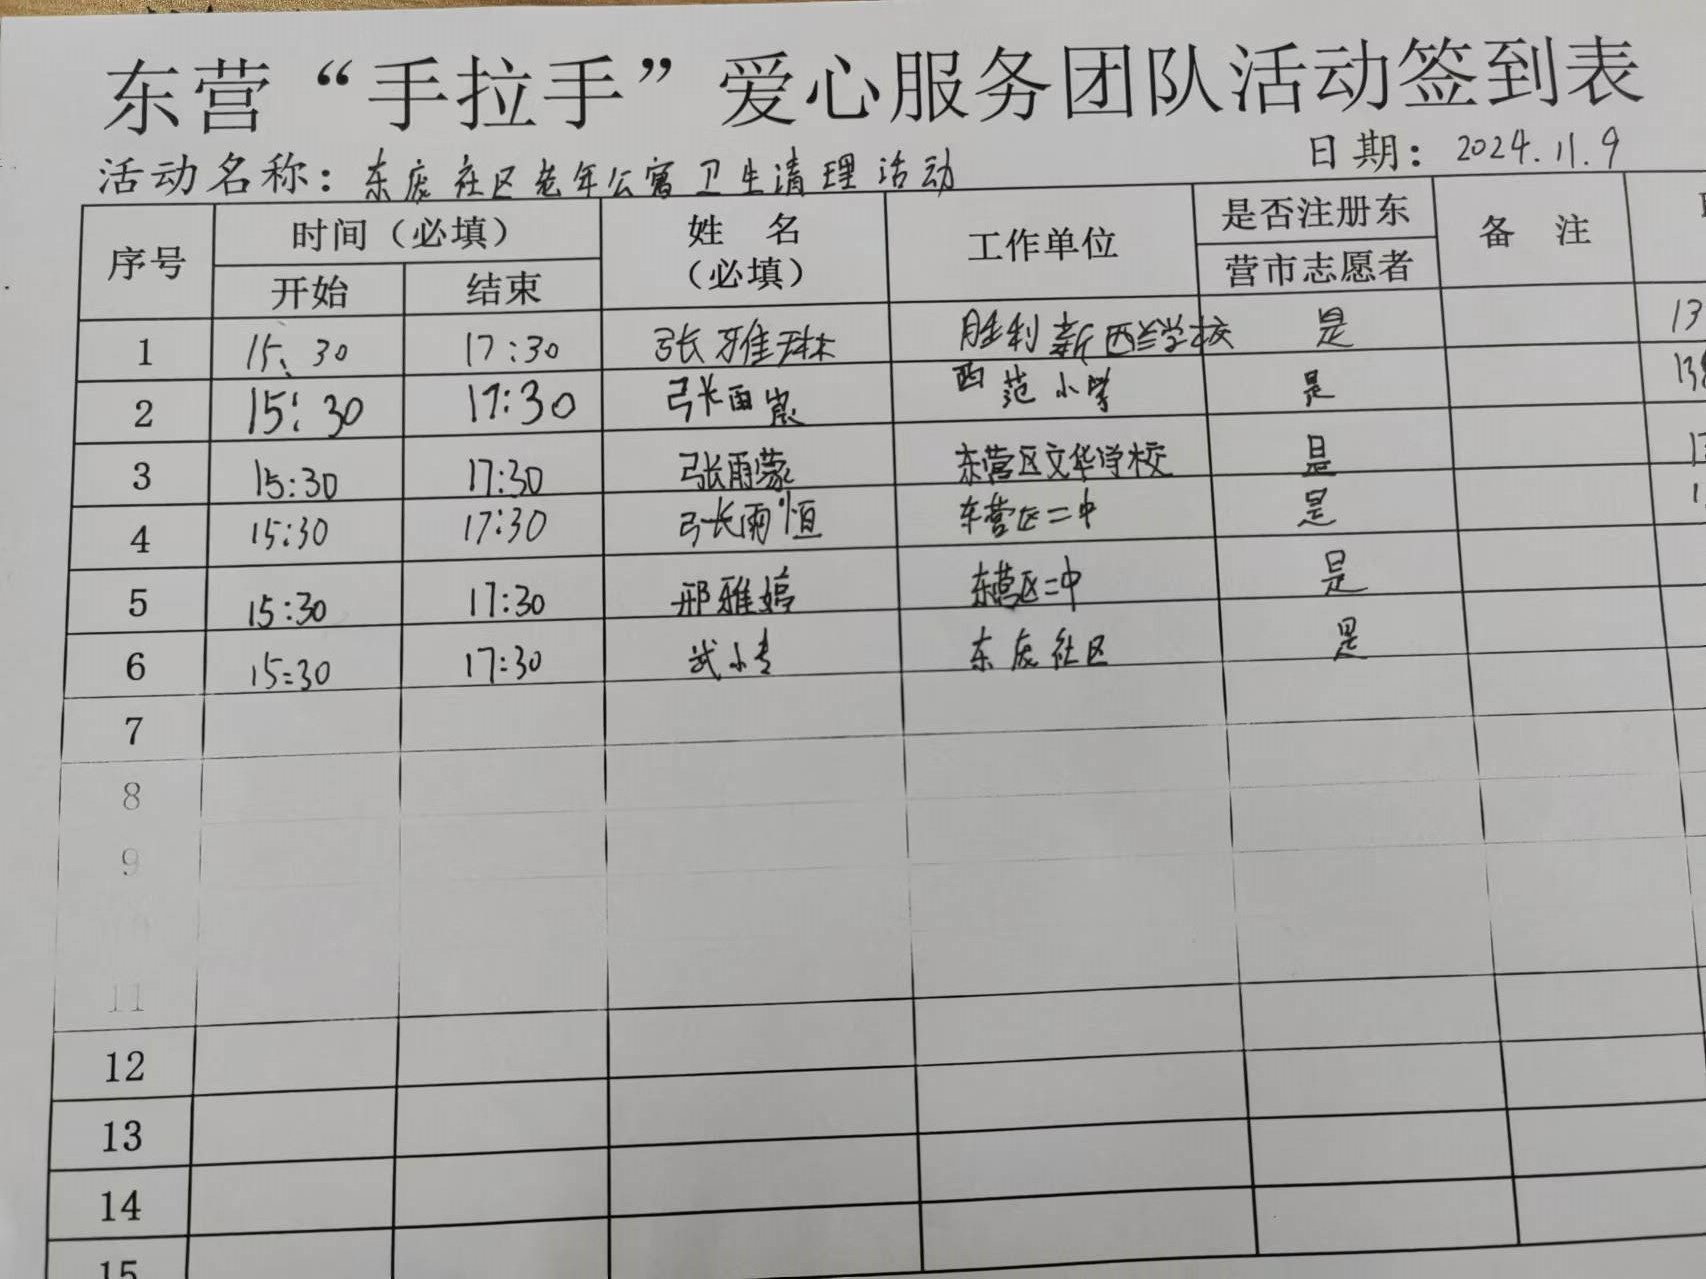 东营“手拉手”爱心服务团队活动签到表
活动名称：东庞社区老年公寓卫生清理活动 日期：2024.11.9
序号 时间（必填） 姓 名（必填） 工作单位 是否注册东营市志愿者 备 注
开始 结束
1 15:30 17:30 张雅琳 胜利新西兰学校 是 13
2 15:30 17:30 张雨 西范小学 是 138
3 15:30 17:30 张雨蒙 东营区文华学校 是 13
4 15:30 17:30 张雨恒 东营区二中 是 1
5 15:30 17:30 邢雅婷 东营区二中 是
6 15:30 17:30 武小 东庞社区 是
7
8
9
10
11
12
13
14
15